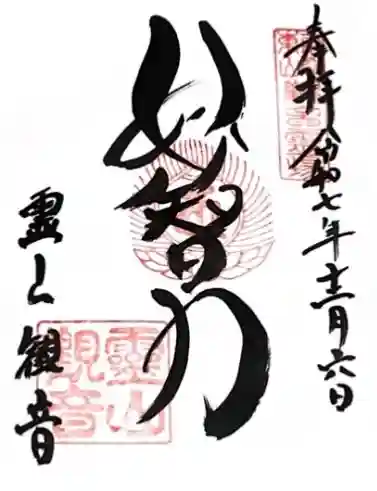 奉拝 令和七年十二月六日
妙智力
霊山観音
靈山
観音